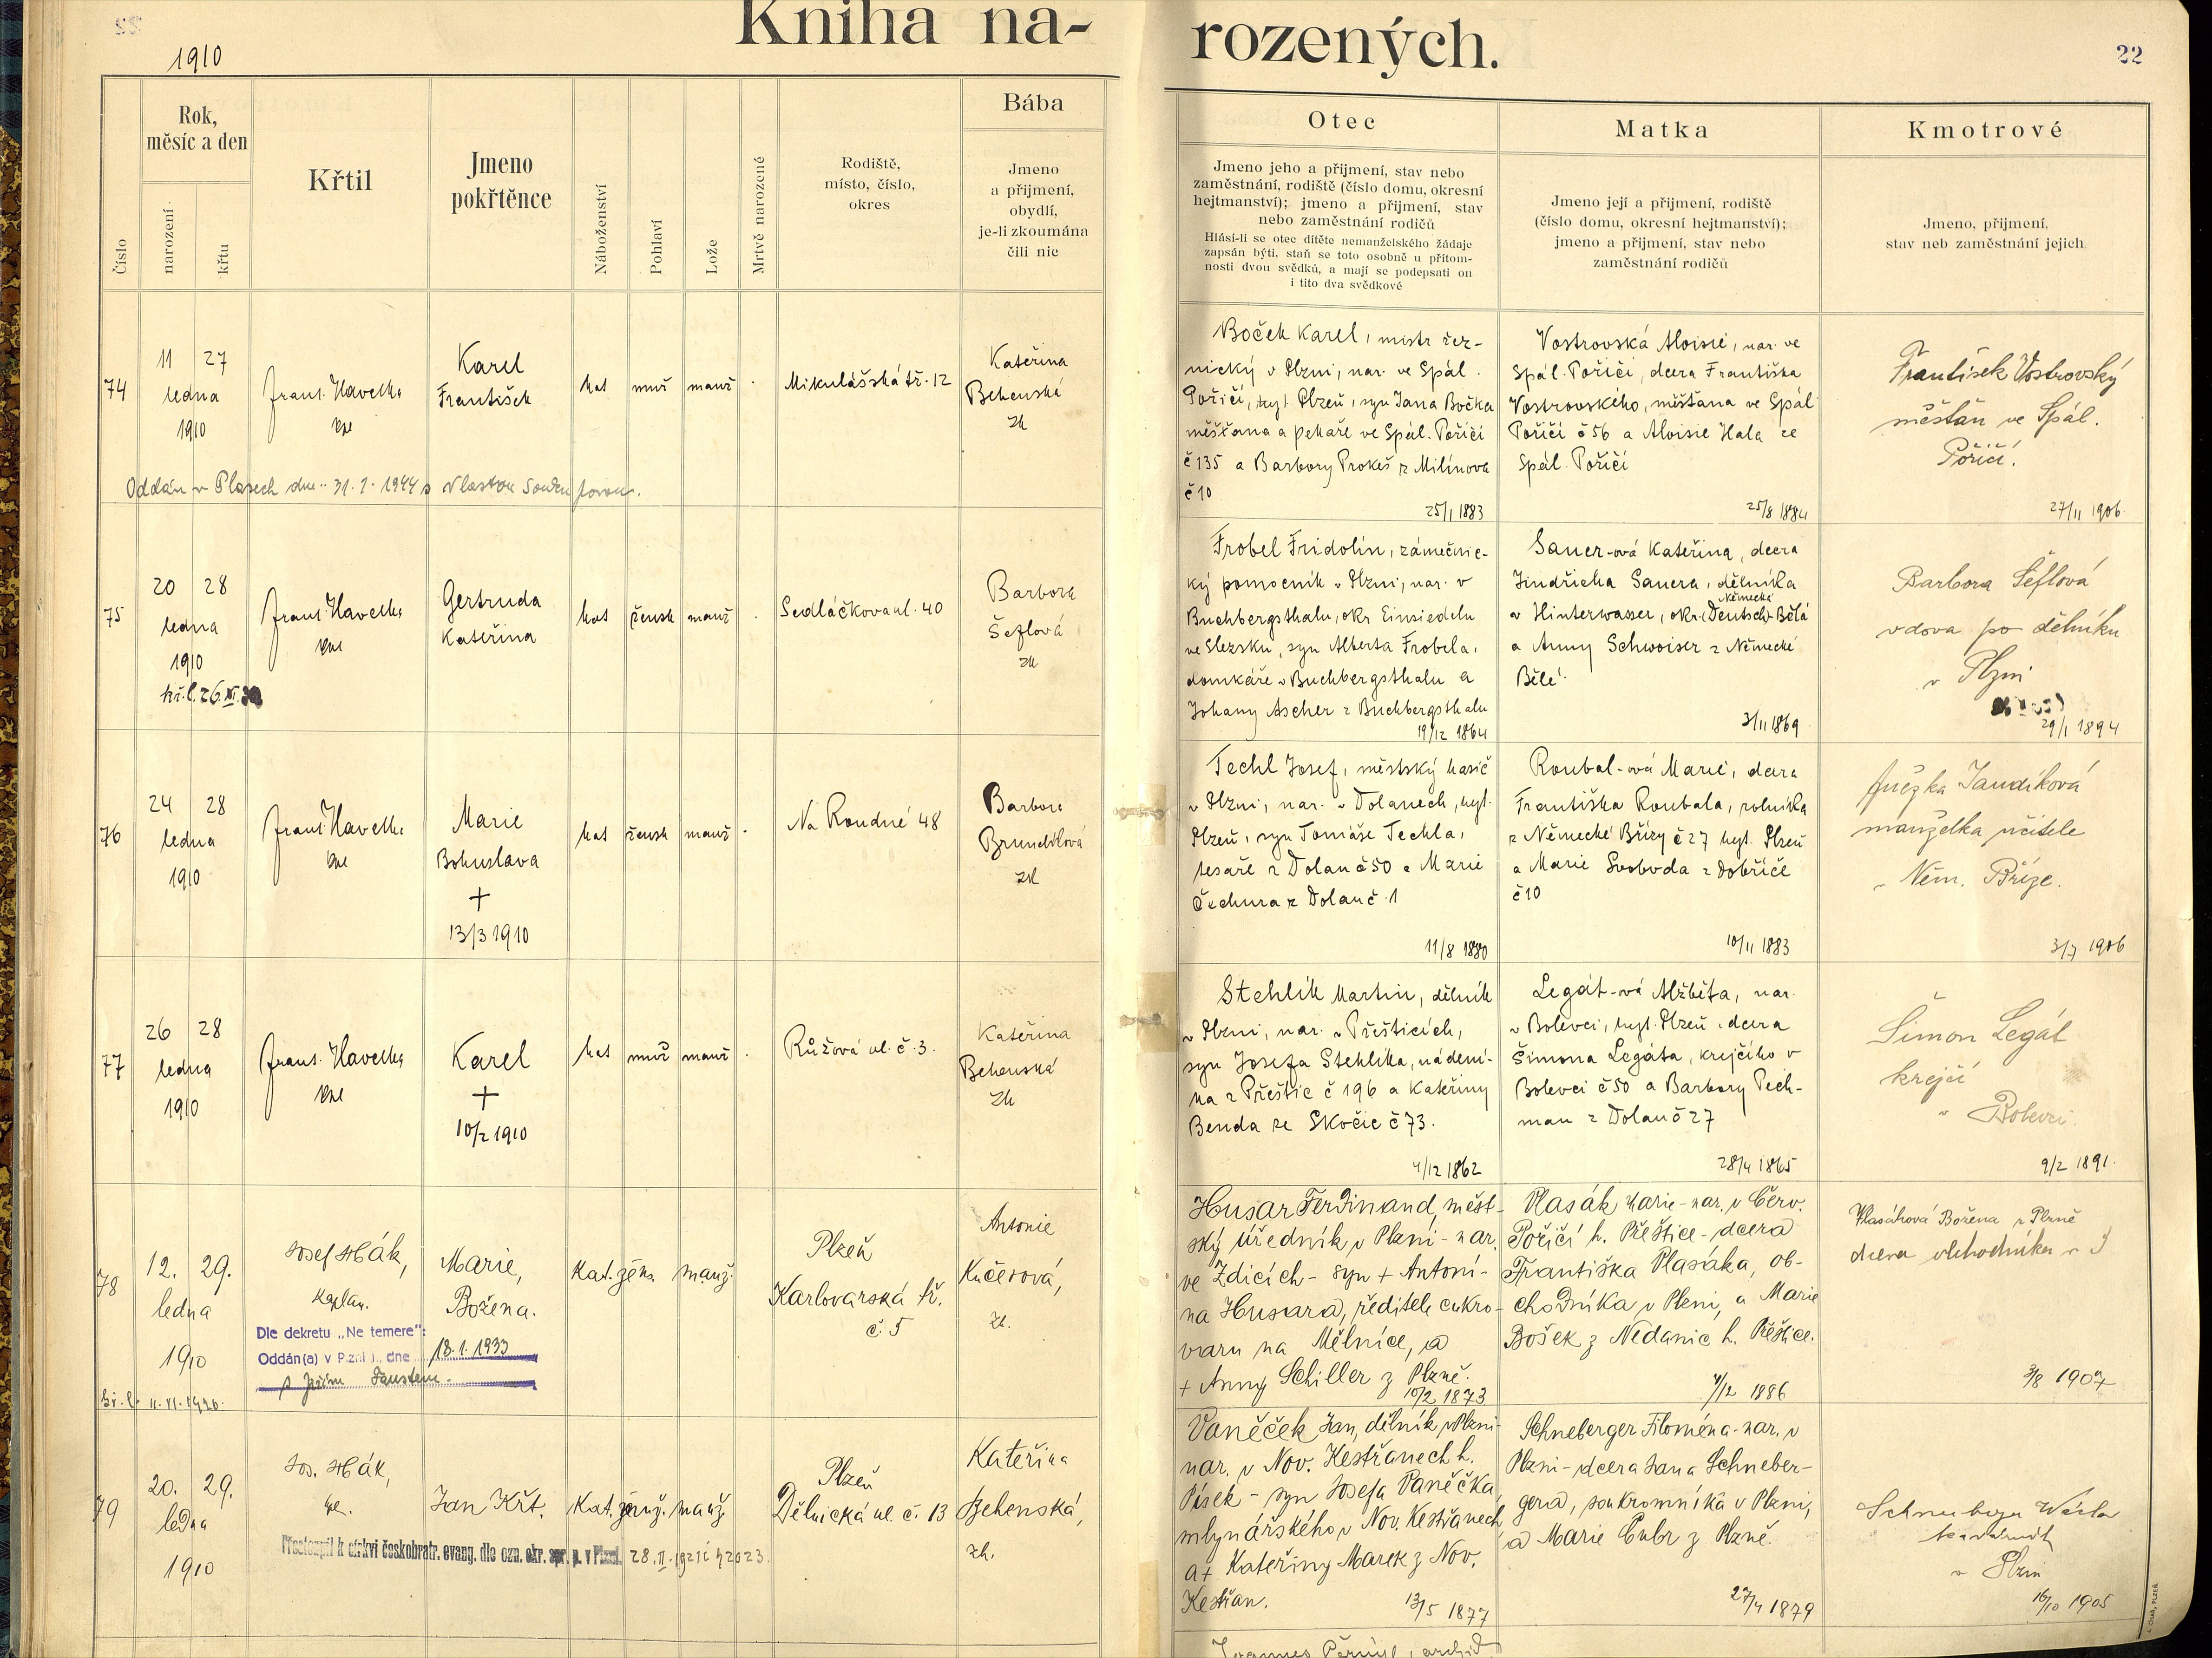 1910
Kniha na-
rozených.
22
Číslo
Rok,
měsíc a den
narození
křtu
Křtil
Jmeno
pokřtěnce
Náboženství
Pohlaví
Lože
Mrtvě narozené
Rodiště,
místo, číslo,
okres
Bába
Jmeno
a přijmení,
obydlí,
je-li zkoumána
čili nic
Otec
Jmeno jeho a přijmení, stav nebo
zaměstnání, rodiště (číslo domu, okresní
hejtmanství); jmeno a přijmení, stav
nebo zaměstnání rodičů
Hlásí-li se otec dítěte nemanželského žádaje
zapsán býti, staň se toto osobně u přítom-
nosti dvou svědků, a mají se podepsati on
i tito dva svědkové
Matka
Jmeno její a přijmení, rodiště
(číslo domu, okresní hejtmanství);
jmeno a přijmení, stav nebo
zaměstnání rodičů
Kmotrové
Jmeno, přijmení,
stav neb zaměstnání jejich
74
11 27
ledna
1910
Frant. Havelka
Karel
František
kat
muž
manž
Mikulášská tř. 12
Kateřina
Behenská
zk
Boček Karel, mistr řez-
nický v Plzni, nar. ve Spál.
Poříčí, byt. Plzeň, syn Jana Bočka
měšťana a pekaře ve Spál. Poříčí
č 135 a Barbory Prokeš z Milínova
č 10
25/1 1883
Vostrovská Aloisie, nar. ve
Spál. Poříčí, dcera Františka
Vostrovského, měšťana ve Spál.
Poříčí č 56 a Aloisie Hala ze
Spál. Poříčí
25/8 1884
František Vostrovský
měšťan ve Spál.
Poříčí.
27/11 1906
Oddán v Plasech dne 31. 7. 1944 s Vlastou
75
20 28
ledna
1910
kř. l. 26. XI.
Frant. Havelka
Gertruda
Kateřina
kat
žensk
manž
Sedláčkova ul. 40
Barbora
Šeflová
zk
Frobel Fridolin, zámečnic-
ký pomocník v Plzni, nar. v
Buchbergsthalu, okr Einsiedeln
ve Slezsku, syn Alberta Frobela,
domkáře v Buchbergsthalu a
Johany Ascher z Buchbergsthalu
19/12 1864
Sauer-ová Kateřina, dcera
Jindřicha Sauera, dělníka
v Hinterwasser, okr. (Deutsch) Německá Bělá
a Anny Schwoiser z Německé
Bělé
3/11 1869
Barbora Šeflová
vdova po dělníku
v Plzni
29/1 1894
76
24 28
ledna
1910
Frant. Havelka
Marie
Bohuslava
+
13/3 1910
kat
žensk
manž
Na Roudné 48
Barbora
Brundlová
zk
Techl Josef, městský hasič
v Plzni, nar. v Dolanech, byt.
Plzeň, syn Tomáše Techla,
tesaře z Dolan č 50 a Marie
Čechura z Dolan č. 1
11/8 1880
Roubal-ová Marie, dcera
Františka Roubala, rolníka
z Německé Břízy č 27 byt. Plzeň
a Marie Svoboda z Dobříče
č 10
10/11 1883
Anežka Jandíková
manželka učitele
v Něm. Bříze.
3/7 1906
77
26 28
ledna
1910
Frant. Havelka
Karel
+
10/2 1910
kat
muž
manž
Růžová ul. č. 3.
Kateřina
Behenská
zk
Stehlík Martin, dělník
v Plzni, nar. v Přešticích,
syn Josefa Stehlíka, nádení-
ka z Přeštic č 196 a Kateřiny
Benda ze Skočic č 73.
4/12 1862
Legát-ová Alžběta, nar.
v Bolevci, byt. Plzeň, dcera
Šimona Legáta, krejčího v
Bolevci č 50 a Barbory Pech-
man z Dolan č 27
28/4 1865
Šimon Legát
krejčí
v Bolevci.
9/2 1891.
78
12. 29.
ledna
1910
kaplan.
Marie,
Božena.
Kat.
žens.
manž.
Plzeň
Karlovarská tř.
č. 5
Antonie
Kučerová,
zk.
Husar Ferdinand, měst-
ský úředník v Plzni - nar.
ve Zdicích - syn + Antoní-
na Husara, ředitele cukro-
varu na Mělníce, a
+ Anny Schiller z Plzně.
10/2 1873
Vlasák Marie - nar. v Červ.
Poříčí h. Přeštice - dcera
Františka Vlasáka, ob-
chodníka v Plzni, a Marie
Bošek z Nedanic h. Přeštice.
4/12 1886
Vlasáková Božena z Plzně
dcera obchodníka
3/8 1907
Dle dekretu „Ne temere":
Oddán(a) v Plzni I., dne 18. 1. 1933
s Jiřím Faustem.
79
20. 29.
ledna
1910
Jan Křt.
Kat.
manž.
Plzeň
Dělnická ul. č. 13
Kateřina
Behenská,
zk.
Vaněček Jan, dělník v Plzni -
nar. v Nov. Kestřanech h.
Písek - syn Josefa Vaněčka,
mlynářského v Nov. Kestřanech
a + Kateřiny Marek z Nov.
Kestřan.
13/5 1877
Schneberger Filoména - nar. v
Plzni - dcera Jana Schneber-
gera, soukromníka v Plzni,
a Marie Cubr z Plzně.
27/4 1879
v Plzni
16/10 1905
Přestoupil k církvi českobratr. evang. dle ozn. okr. spr. p. v Plzni 28. II. 1921